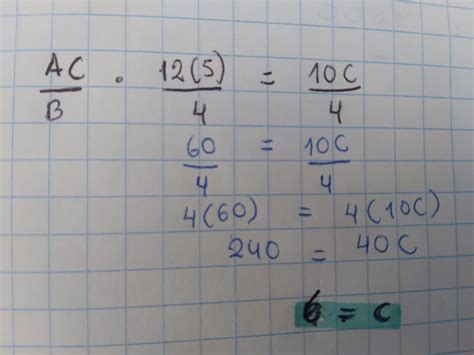 AC/B · 12(5)/4 = 10C/4
60/4 = 10C/4
4(60) = 4(10C)
240 = 40C
6 = C